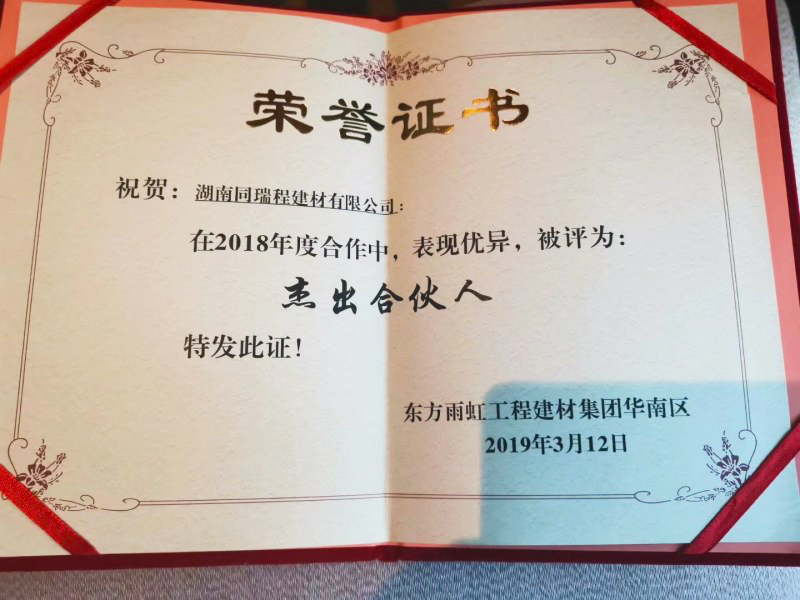 荣誉证书
祝贺：湖南同瑞程建材有限公司：
在2018年度合作中，表现优异，被评为：
杰出合伙人
特发此证！
东方雨虹工程建材集团华南区
2019年3月12日